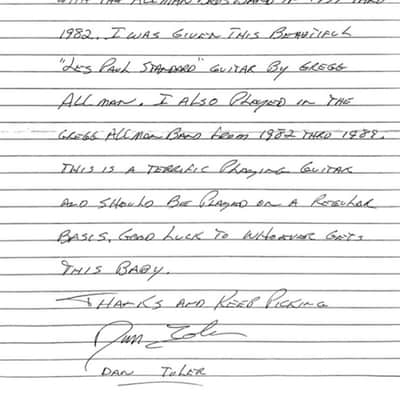 WITH THE ALLMAN BROS BAND IN 1979 THRU
1982. I WAS GIVEN THIS BEAUTIFUL
"LES PAUL STANDARD" GUITAR BY GREGG
ALLMAN. I ALSO PLAYED IN THE
GREGG ALLMAN BAND FROM 1982 THRU 1989.
THIS IS A TERRIFIC PLAYING GUITAR
AND SHOULD BE PLAYED ON A REGULAR
BASIS. GOOD LUCK TO WHOEVER GETS
THIS BABY.
THANKS AND KEEP PICKING
Dan Toler
DAN TOLER